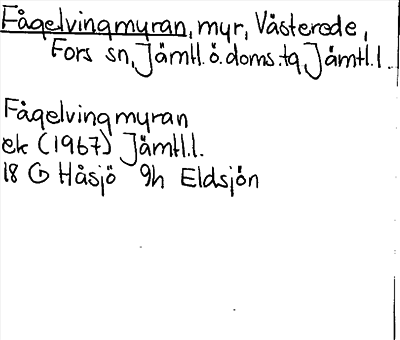 Fågelvingmyran, myr, Västerede,
Fors sn, Jämtl. ö. doms. tg, Jämtl. l.
Fågelvingmyran
ek (1967) Jämtl. l.
18 G Håsjö 9h Eldsjön